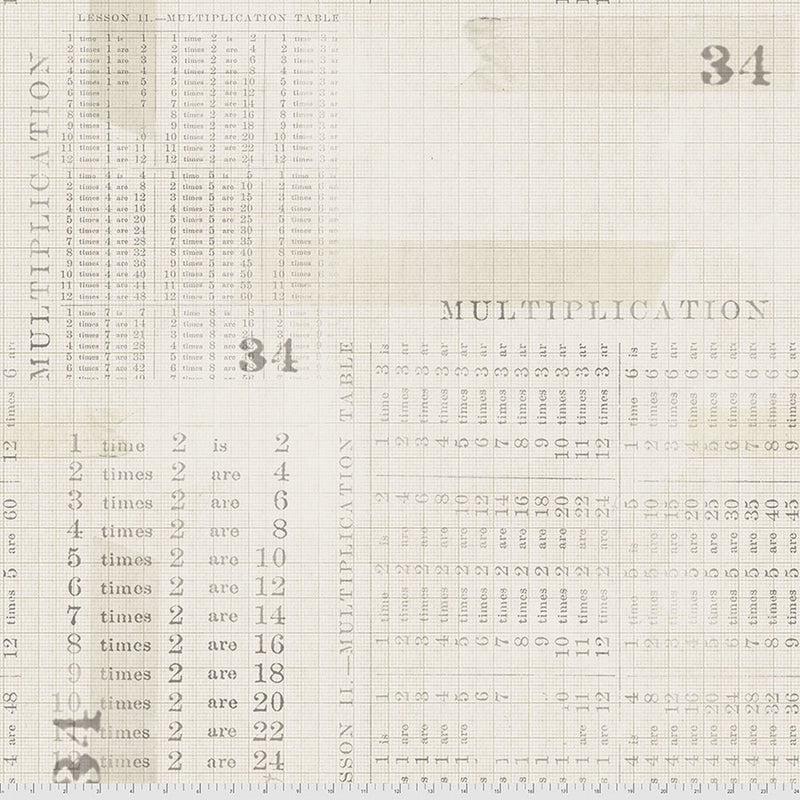 LESSON II.—MULTIPLICATION TABLE
34
MULTIPLICATION
1 time 1 is 1 1 time 2 is 2 1 time 3 is
2 times 1 are 2 2 times 2 are 4 2 times 3 ar
3 times 1 are 3 3 times 2 are 6 3 times 3 ar
4 times 1 are 4 4 times 2 are 8 4 times 3 ar
5 times 1 are 5 5 times 2 are 10 5 times 3 ar
6 times 6 6 times 2 are 12 6 times 3 ar
7 times 1 7 7 times 2 are 14 7 times 3 ar
8 times 1 8 times 2 are 16 8 times 3 ar
9 times 1 9 times 2 are 18 9 times 3 ar
10 times 1 10 times 2 are 20 10 times 3 ar
11 times 1 are 11 11 times 2 are 22 11 times 3 ar
12 times 1 are 12 12 times 2 are 24 12 times 3 ar
1 time 4 is 4 1 time 5 is 5 1 time 6 is
2 times 4 are 8 2 times 5 are 10 2 times 6 ar
3 times 4 are 12 3 times 5 are 15 3 times 6 ar
4 times 4 are 16 4 times 5 are 20 4 times 6 ar
5 times 4 are 20 5 times 5 are 25 5 times 6 ar
6 times 4 are 24 6 times 5 are 30 6 times 6 ar
7 times 4 are 28 7 times 5 are 35 7 times 6 ar
8 times 4 are 32 8 times 5 are 40 8 times 6 ar
9 times 4 are 36 9 times 5 are 45 9 times 6 ar
10 times 4 are 40 10 times 5 are 50 10 times 6 ar
11 times 4 are 44 11 times 5 are 55 11 times 6 ar
12 times 4 are 48 12 times 5 are 60 12 times 6 ar
1 time 7 is 7 1 time 8 is 8
2 times 7 are 14 2 times 8 are 16
3 times 7 are 21 3 times 8 are 24
4 times 7 are 28 4 times 8 are
5 times 7 are 35 5 times 8 are
6 times 7 are 42 6 times 8 are
34
MULTIPLICATION
1 time 2 is 2
2 times 2 are 4
3 times 2 are 6
4 times 2 are 8
5 times 2 are 10
6 times 2 are 12
7 times 2 are 14
8 times 2 are 16
9 times 2 are 18
10 times 2 are 20
times 2 are 22
times 2 are 24
34
SSON II.—MULTIPLICATION TABLE
1 is 1 time 2 is 2 1 time 3 is
1 are 2 2 times 2 are 4 2 times 3 ar
1 are 3 3 times 2 are 6 3 times 3 ar
1 are 4 4 times 2 are 8 4 times 3 ar
1 are 5 5 times 2 are 10 5 times 3 ar
6 6 times 2 are 12 6 times 3 ar
7 7 times 2 are 14 7 times 3 ar
8 times 2 are 16 8 times 3 ar
9 times 2 are 18 9 times 3 ar
10 times 2 are 20 10 times 3 ar
1 are 11 11 times 2 are 22 11 times 3 ar
1 are 12 12 times 2 are 24 12 times 3 ar
4 is 4 1 time 5 is 5 1 time 6 is
4 are 8 2 times 5 are 10 2 times 6 are
4 are 12 3 times 5 are 15 3 times 6 are
4 are 16 4 times 5 are 20 4 times 6 are
4 are 20 5 times 5 are 25 5 times 6 are
4 are 24 6 times 5 are 30 6 times 6 are
4 are 28 7 times 5 are 35 7 times 6 are
4 are 32 8 times 5 are 40 8 times 6 are
4 are 36 9 times 5 are 45 9 times 6 are
s 4 are 48 12 times 5 are 60 12 times 6 ar